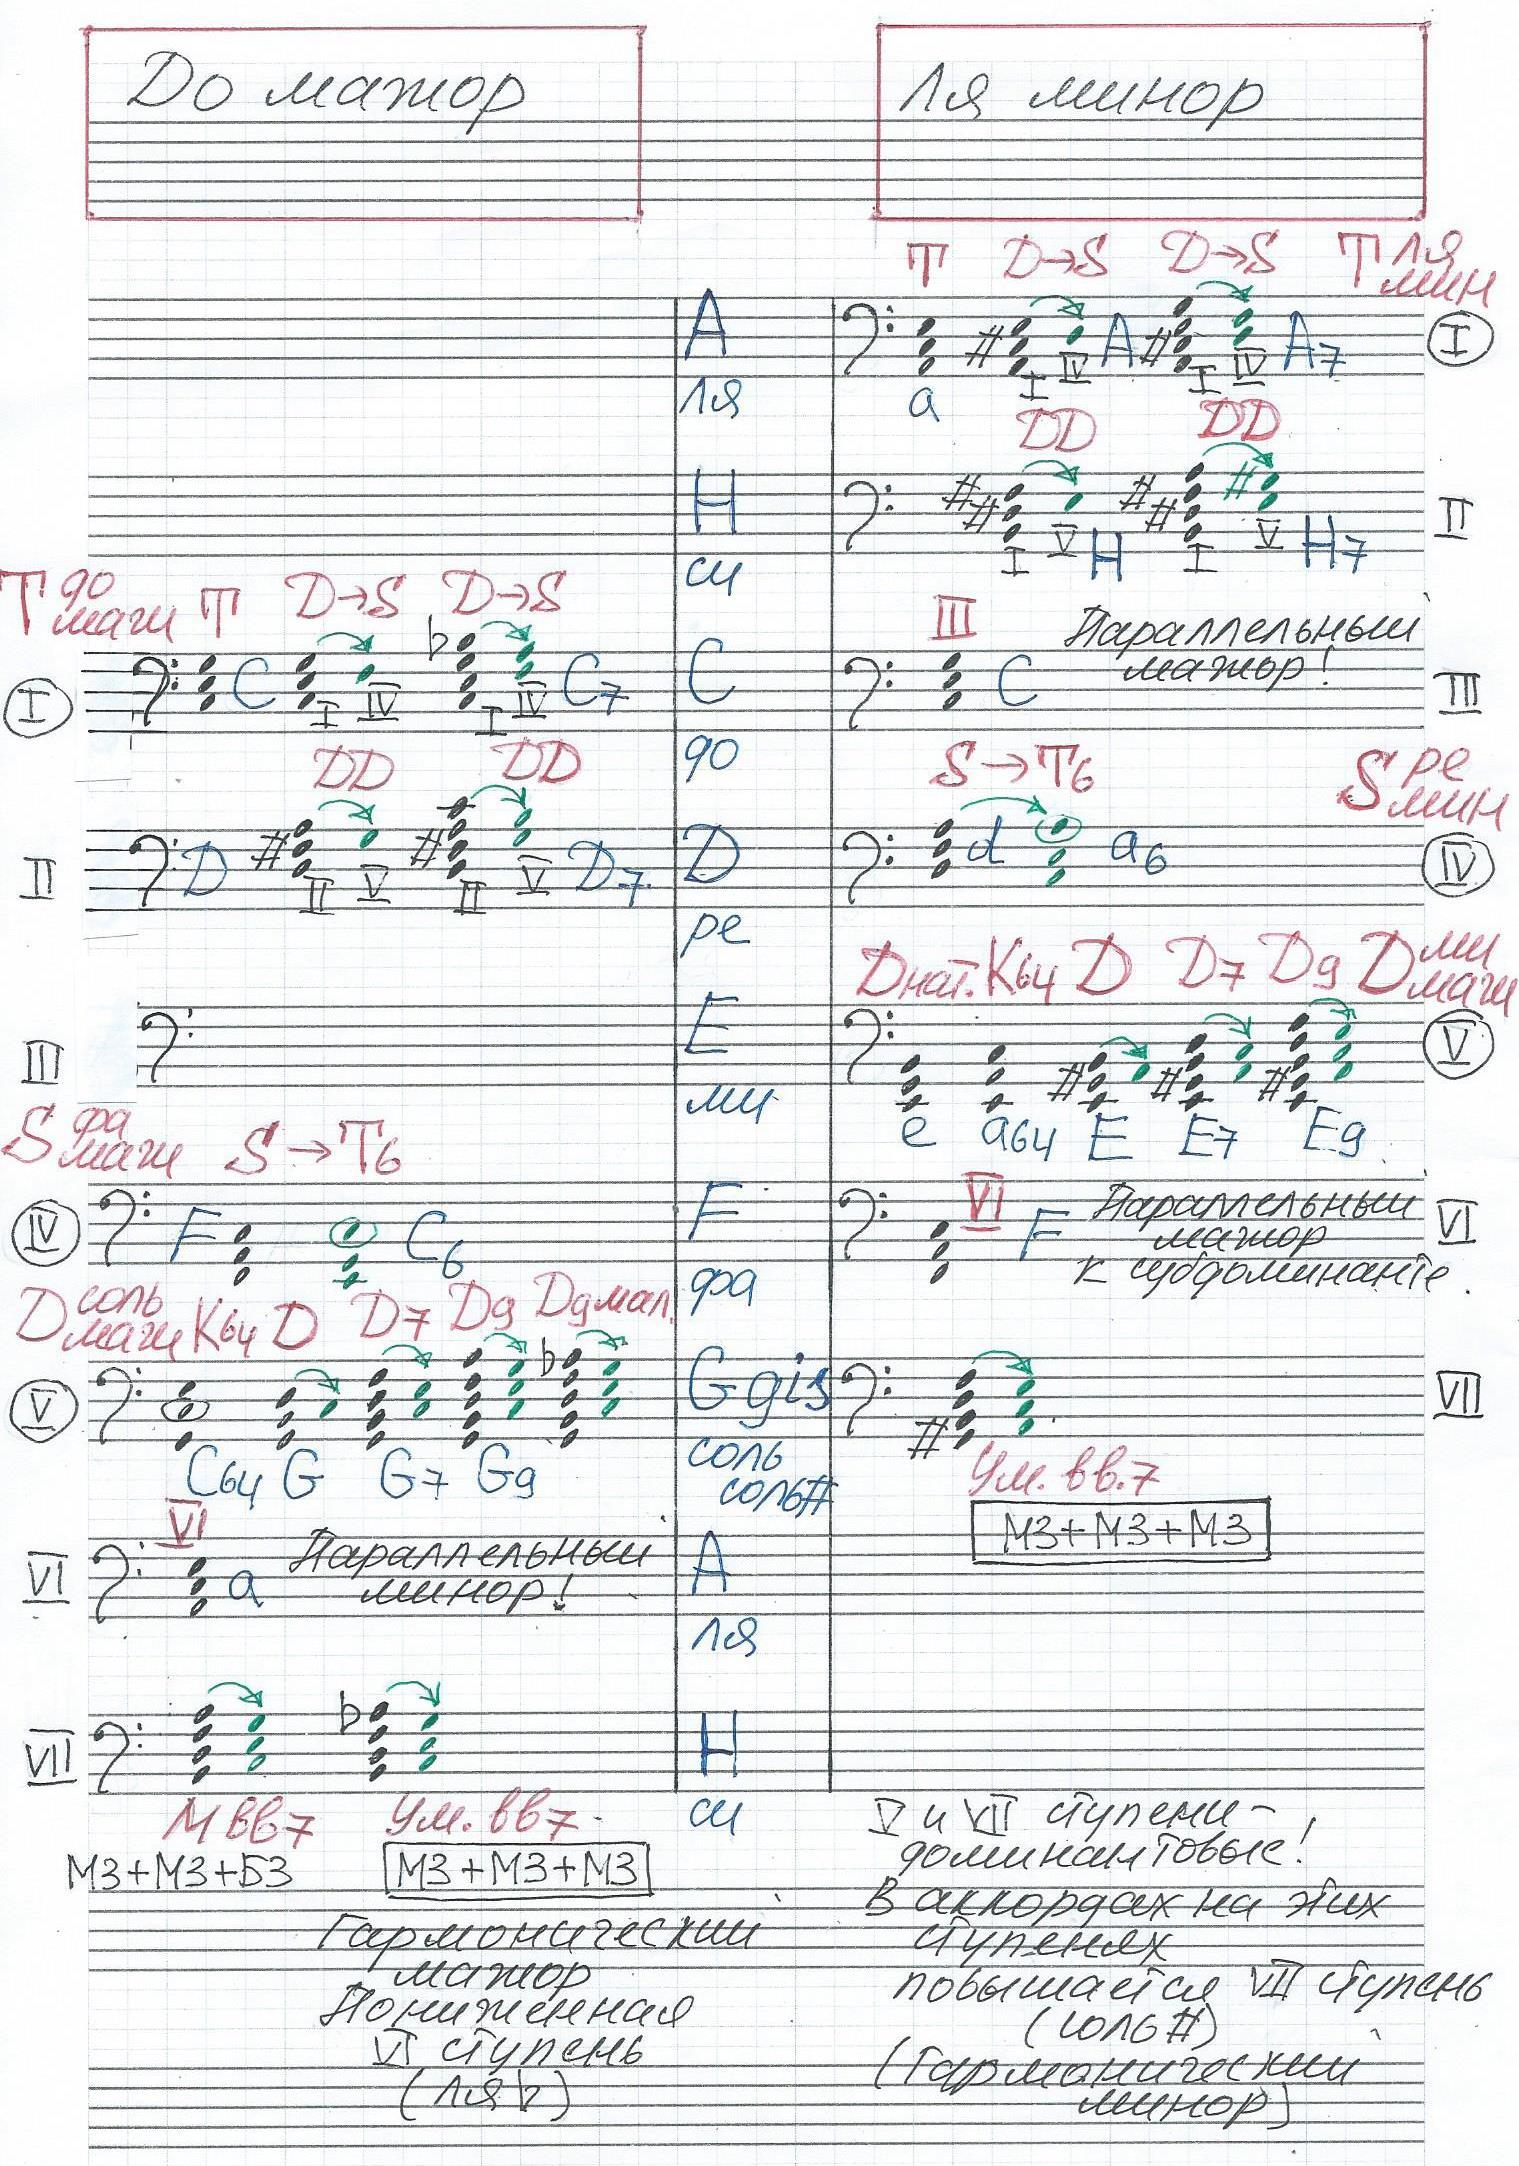 До мажор
Ля минор
T D→S D→S T ля мин
A
ля
a I IV A I IV A7 I
DD DD
H
си
I V H I V H7 II
T до маж T D→S D→S
III Параллельный мажор!
I C I IV I IV C7
C
до
C III
DD DD
S→T6 S ре мин
II D II V II V D7
D
ре
d a6 IV
Dнат. K64 D D7 D9 D ми маж
III
E
ми
V
e a64 E E7 E9
S фа маж S→T6
IV F C6
F
фа
VI F Параллельный
мажор
к субдоминанте.
VI
D соль маж K64 D D7 D9 D9 мал.
V
C64 G G7 G9
G gis
соль
соль#
VII
Ум. вв.7
М3+М3+М3
VI
VI a Параллельный
минор!
A
ля
VII
H
си
М вв7 Ум. вв7
М3+М3+Б3 М3+М3+М3
Гармонический
мажор
Пониженная
VI ступень
(ля♭)
V и VII ступени –
доминантовые!
В аккордах на этих
ступенях
повышается VII ступень
(соль#)
(Гармонический
минор)